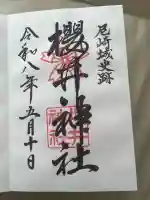 尼崎城史跡
櫻井神社
令和八年五月十日